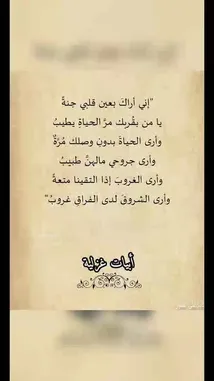 "إني أراكَ بعين قلبي جنةً
يا من بقُربك مرَّ الحياةِ يطيبُ
وأرى الحياةَ بدونِ وصلك مُرَّةً
وأرى جروحي مالهنَّ طبيبُ
وأرى الغروبَ إذا التقينا متعةً
وأرى الشروقَ لدى الفراقِ غروبُ"
أبيات غزلية